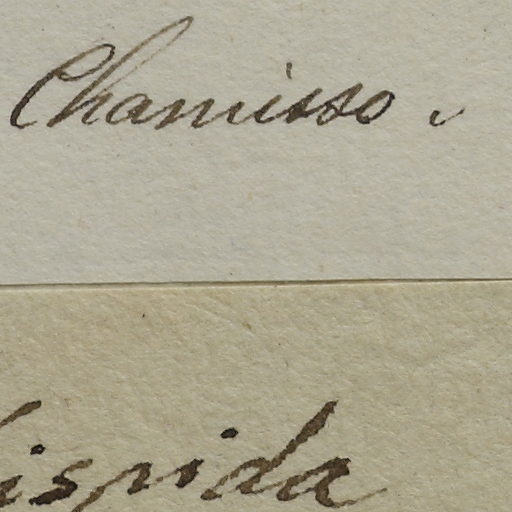 Chamisso.
hispida